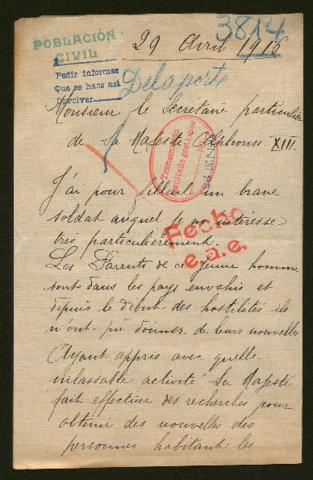 3814
POBLACIÓN
CIVIL
29 Avril 1916
Pedir informes
Que se haga así
Delaporte
Monsieur le Secretaire particulier
de Sa Majesté Alphonse XIII.
J'ai pour filleul un brave
soldat auquel je m'intéresse
très particulièrement.
Fecho
e.a.e.
Les Parents de ce jeune homme
sont dans les pays envahis et
depuis le début des hostilités ils
n'ont pu donner de leurs nouvelles
Ayant appris avec quelle
inlassable activité Sa Majesté
fait effectuer des recherches pour
obtenir des nouvelles des
personnes habitant les